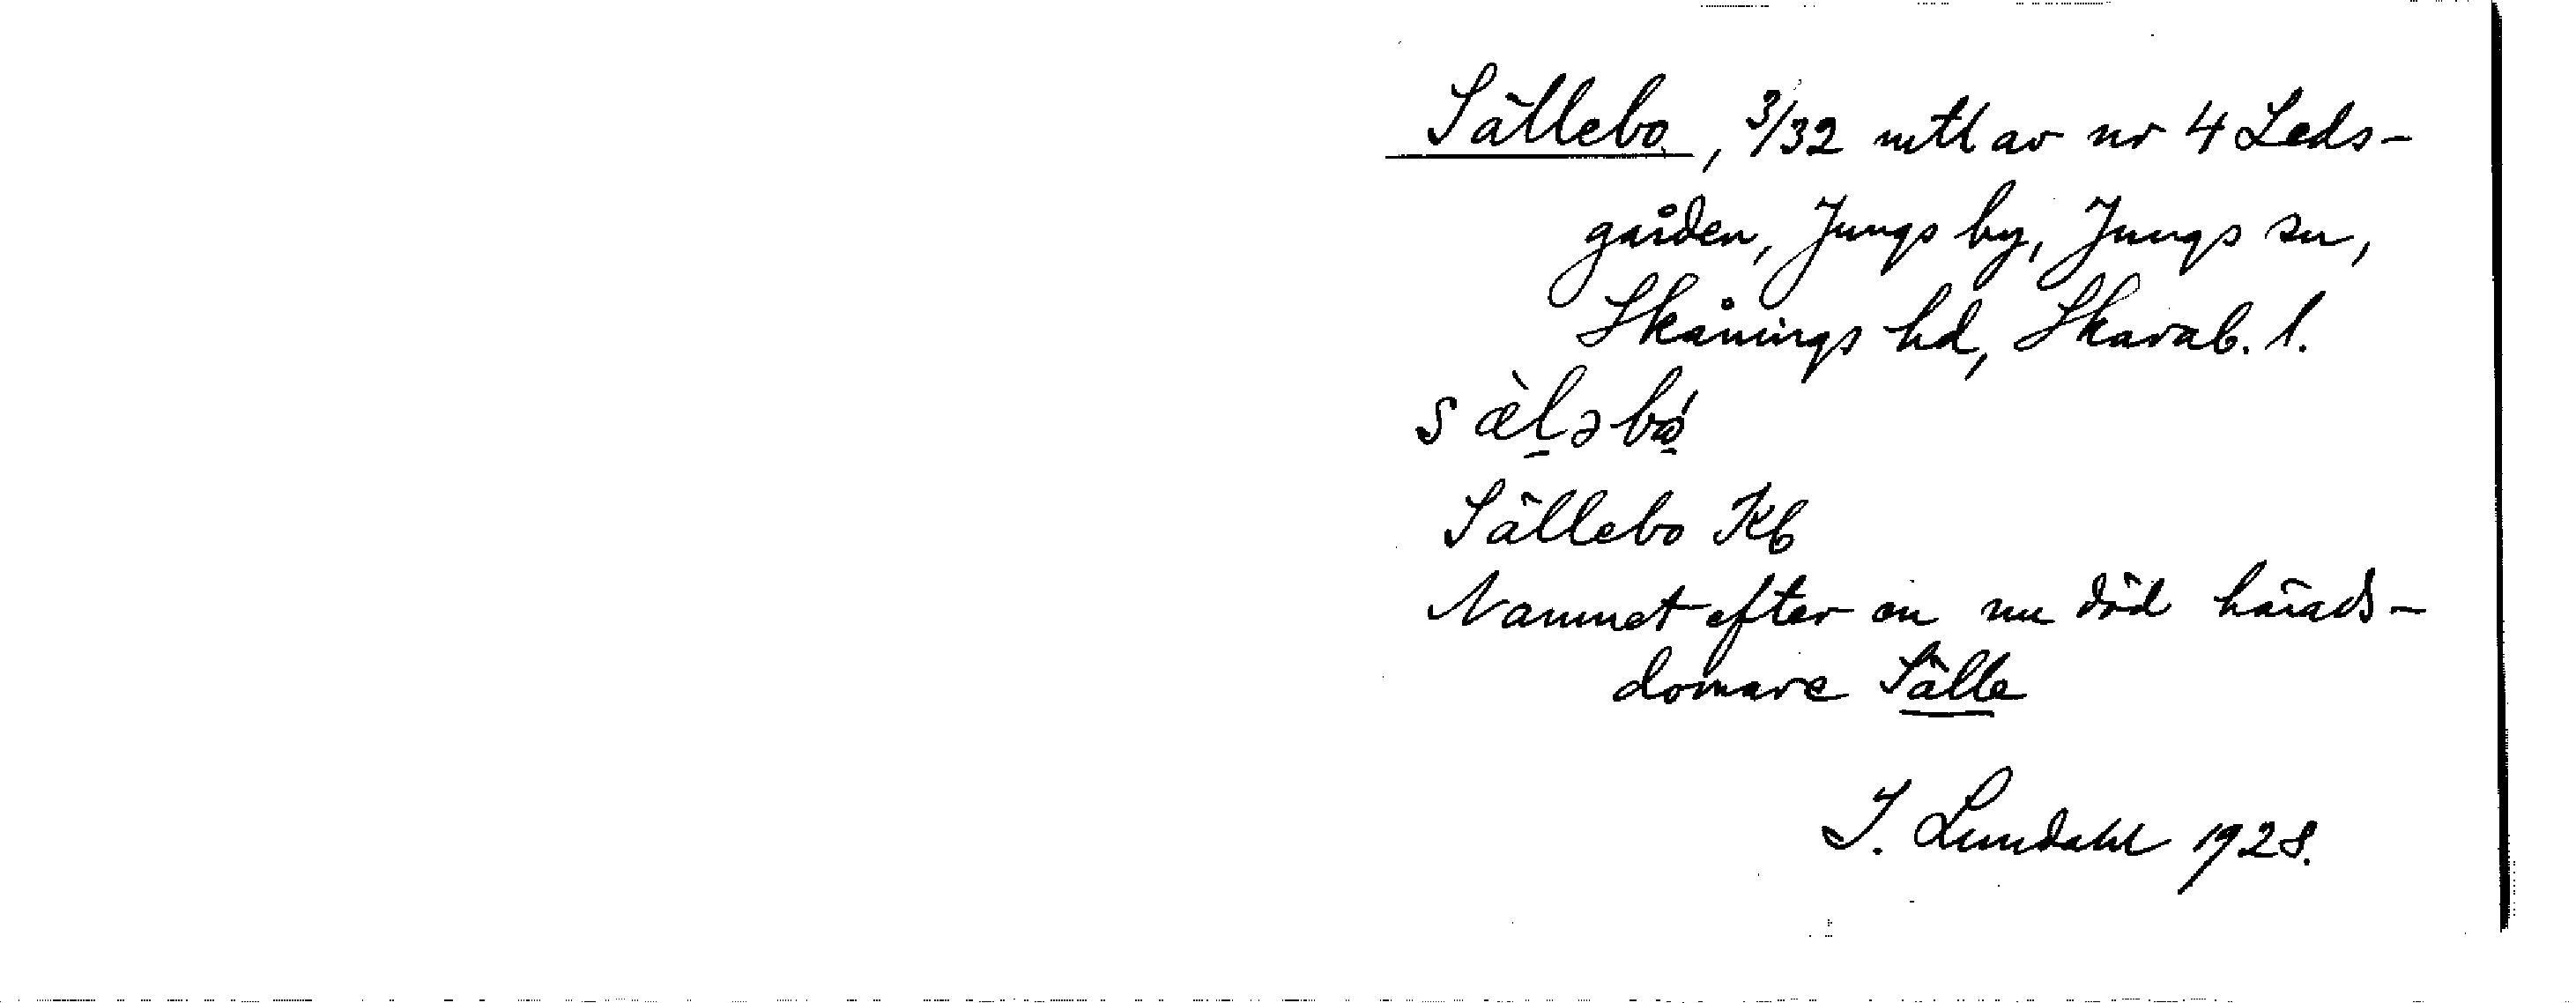 Sällebo, 3/32 mtl av nr 4 Leds-
gården, Jungs by, Jungs sn,
Skånings hd, Skarab. l.
sæ̀l̠əbǻ̠
Sällebo Kb
Namnet efter en nu död härads-
domare Sälle
I. Lundahl 1928.